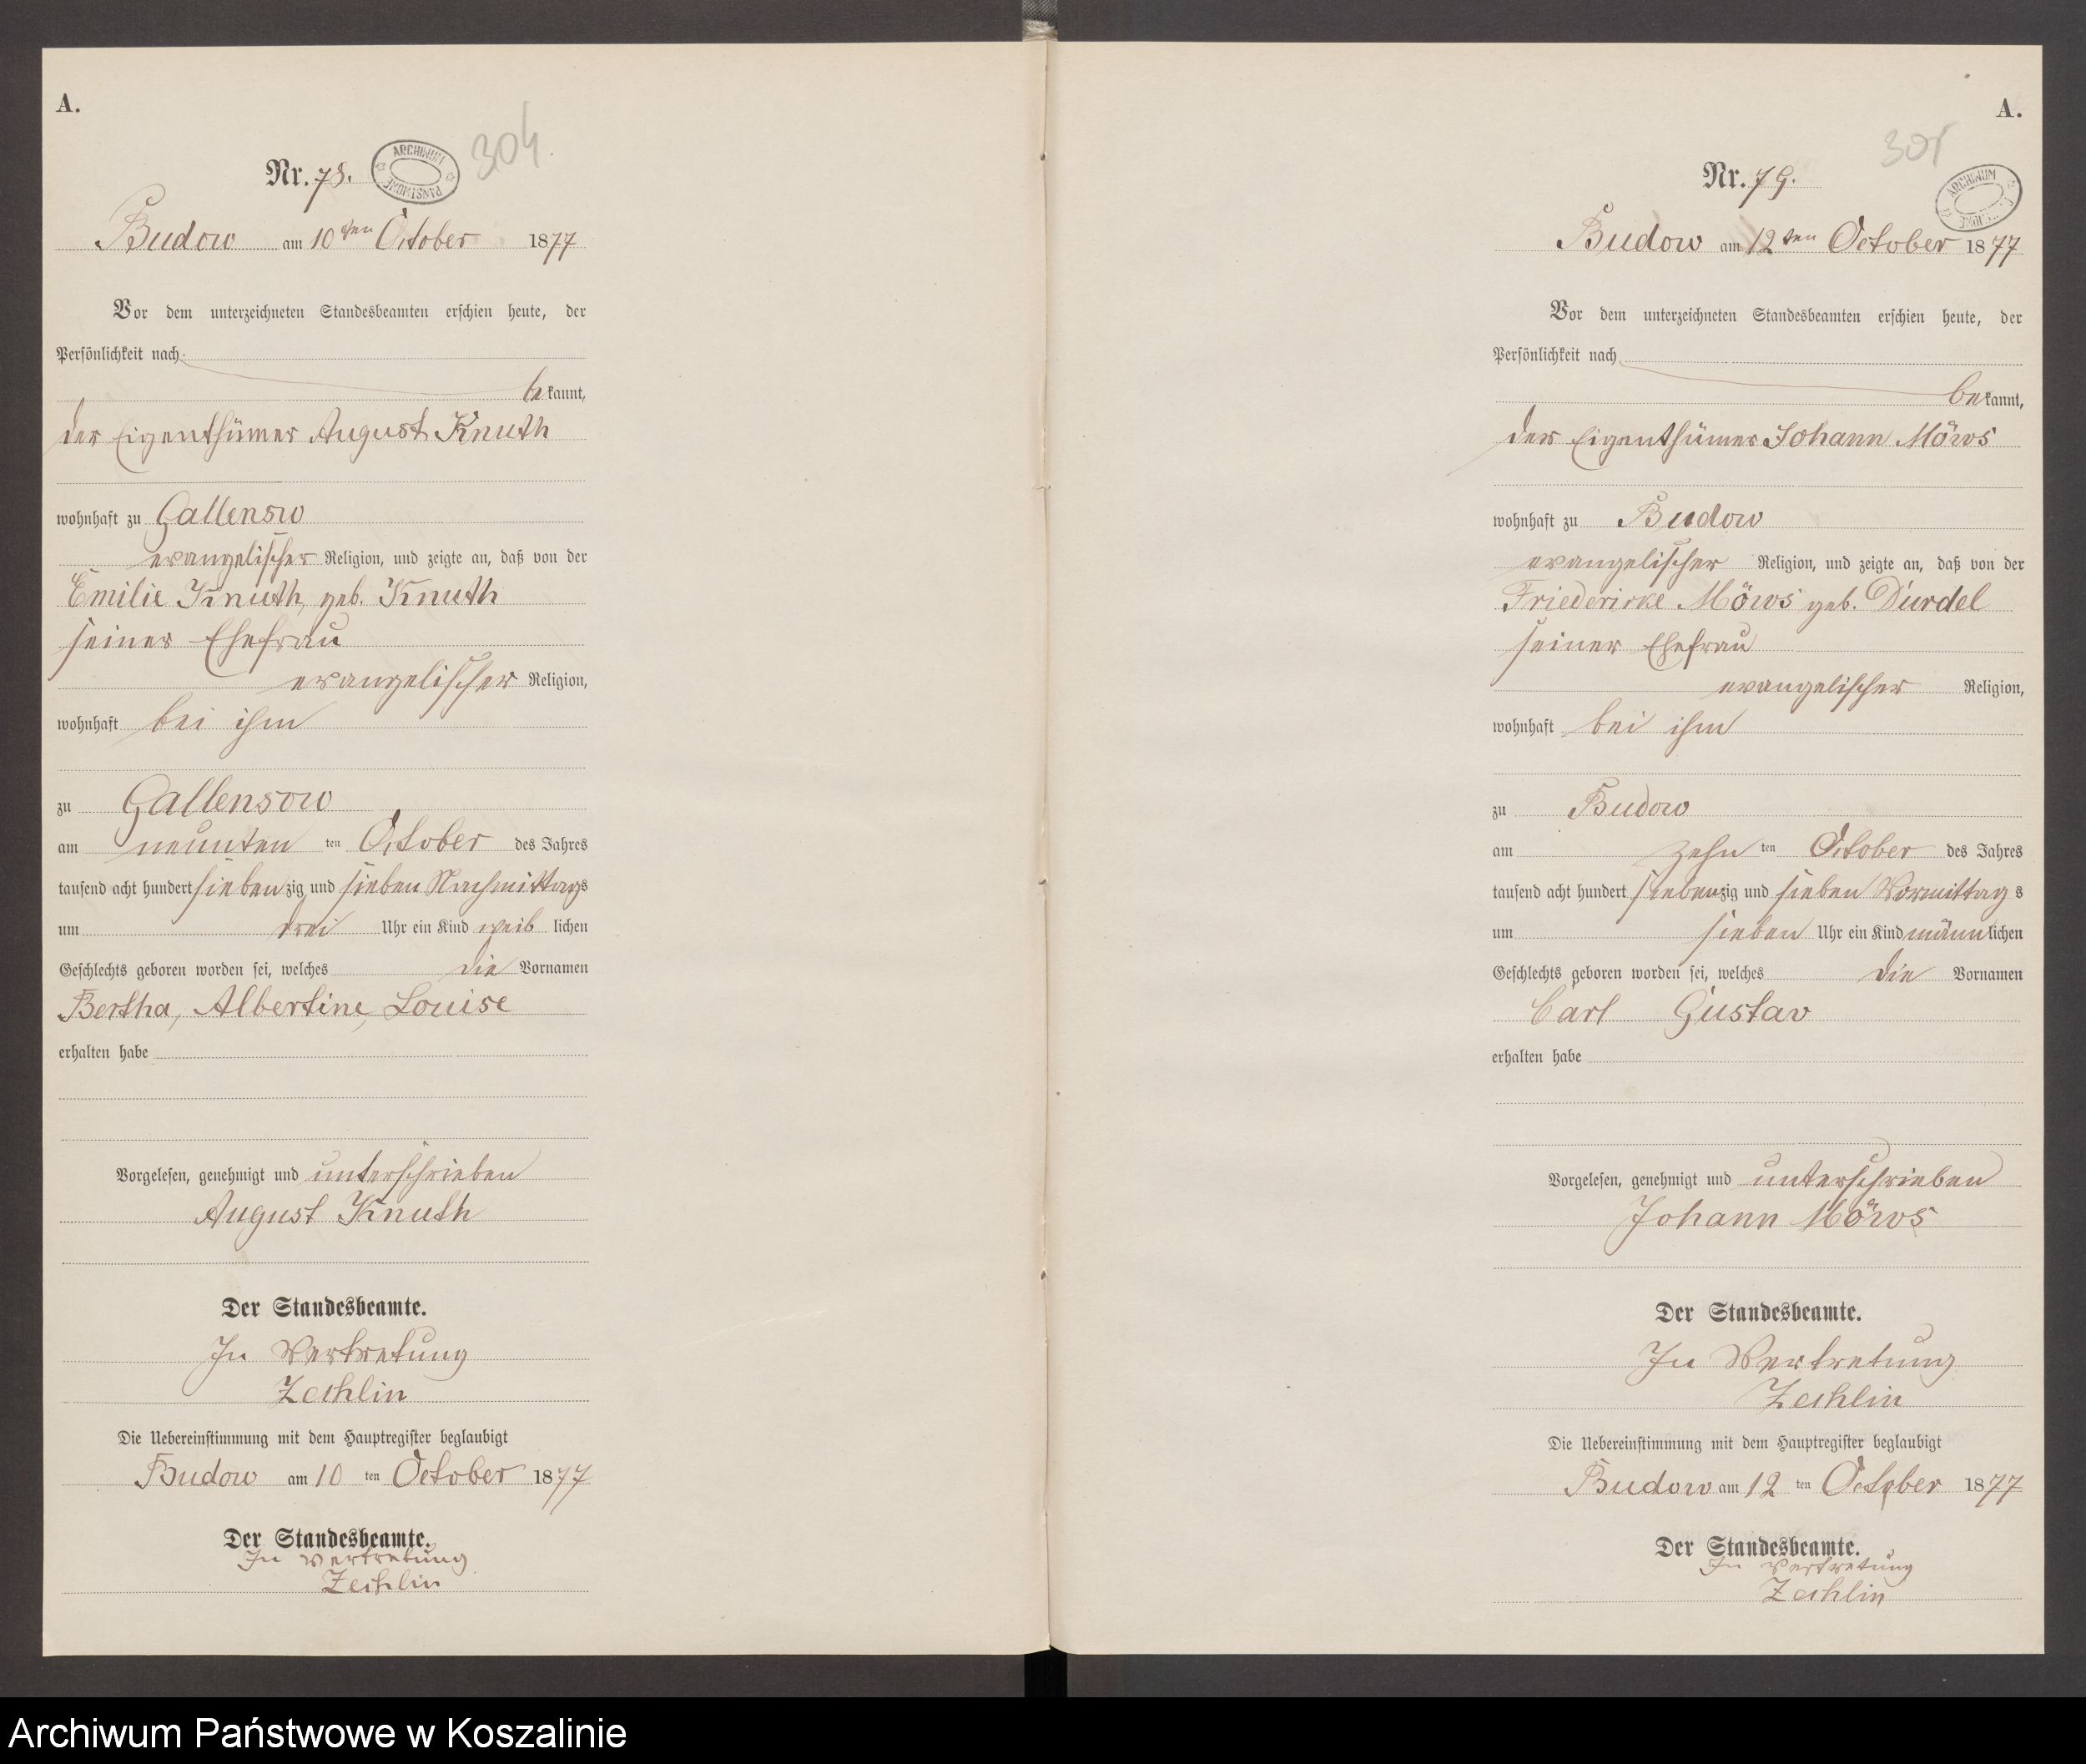 A.
Nr. 78.
ARCHIWUM PAŃSTWOWE
304.
Budow am 10ten October 1877
Vor dem unterzeichneten Standesbeamten erschien heute, der
Persönlichkeit nach
bekannt,
der Eigenthümer August Knuth
wohnhaft zu Gallensow
evangelischer Religion, und zeigte an, daß von der
Emilie Knuth, geb. Knuth
seiner Ehefrau
evangelischer Religion,
wohnhaft bei ihm
zu Gallensow
am neunten ten October des Jahres
tausend acht hundert siebenzig und sieben Nachmittags
um drei Uhr ein Kind weiblichen
Geschlechts geboren worden sei, welches die Vornamen
Bertha, Albertine, Louise
erhalten habe
Vorgelesen, genehmigt und unterschrieben
August Knuth
Der Standesbeamte.
In Vertretung
Zechlin
Die Uebereinstimmung mit dem Hauptregister beglaubigt
Budow am 10 ten October 1877
Der Standesbeamte.
In Vertretung
Zechlin
A.
305
Nr. 79.
ARCHIWUM
Budow am 12ten October 1877
Vor dem unterzeichneten Standesbeamten erschien heute, der
Persönlichkeit nach
bekannt,
der Eigenthümer Johann Möws
wohnhaft zu Budow
evangelischer Religion, und zeigte an, daß von der
Friedericke Möws geb. Durdel
seiner Ehefrau
evangelischer Religion,
wohnhaft bei ihm
zu Budow
am zehn ten October des Jahres
tausend acht hundert siebenzig und sieben Vormittags
um sieben Uhr ein Kind männlichen
Geschlechts geboren worden sei, welches die Vornamen
Carl Gustav
erhalten habe
Vorgelesen, genehmigt und unterschrieben
Johann Möws
Der Standesbeamte.
In Vertretung
Zechlin
Die Uebereinstimmung mit dem Hauptregister beglaubigt
Budow am 12 ten October 1877
Der Standesbeamte.
In Vertretung
Zechlin
Archiwum Państwowe w Koszalinie